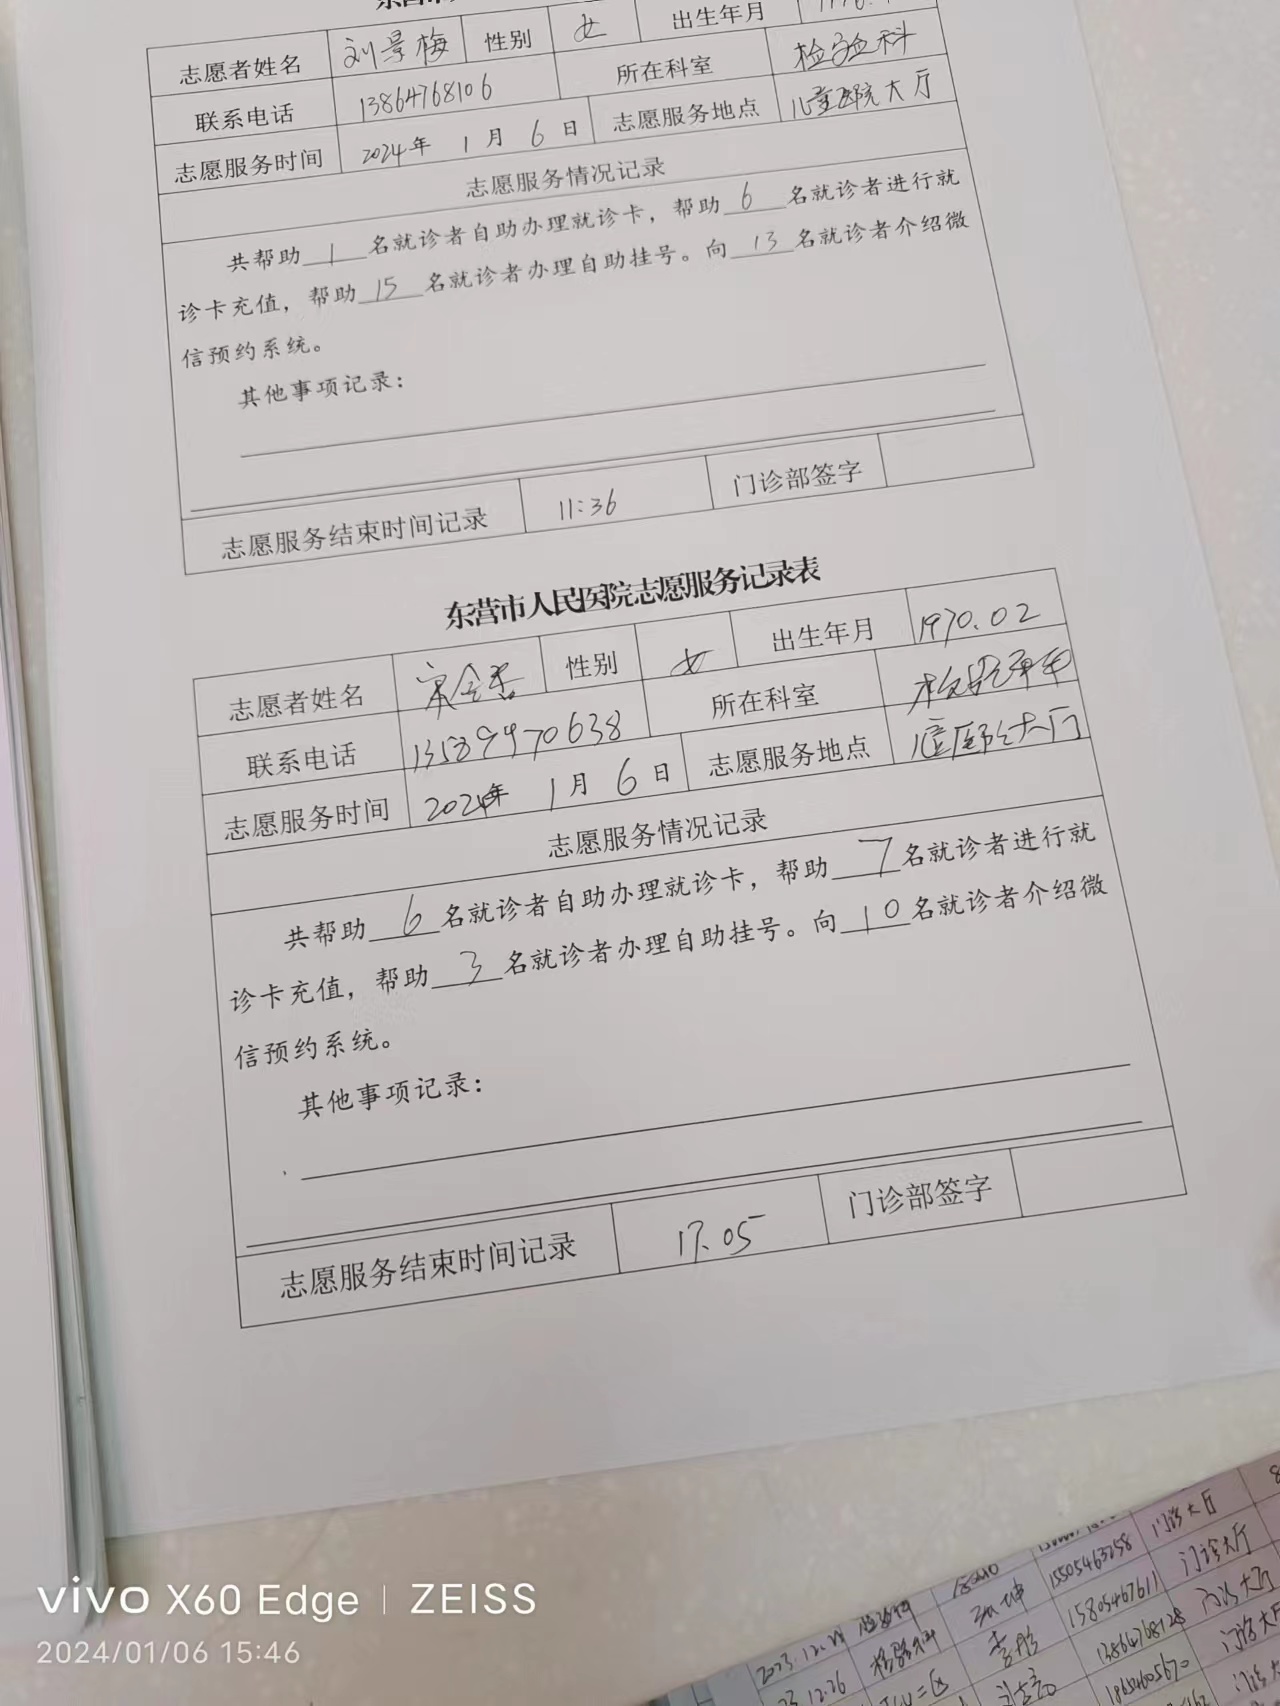 志愿者姓名 刘景梅 性别 女 出生年月
联系电话 13864768106 所在科室 检验科
志愿服务时间 2024年 1月 6日 志愿服务地点 儿童医院大厅
志愿服务情况记录
共帮助 1 名就诊者自助办理就诊卡，帮助 6 名就诊者进行就
诊卡充值，帮助 15 名就诊者办理自助挂号。向 13 名就诊者介绍微
信预约系统。
其他事项记录：
志愿服务结束时间记录 11:36 门诊部签字
东营市人民医院志愿服务记录表
志愿者姓名 性别 女 出生年月 1970.02
联系电话 13589970638 所在科室
志愿服务时间 2024年 1月 6日 志愿服务地点 儿童医院大厅
志愿服务情况记录
共帮助 6 名就诊者自助办理就诊卡，帮助 7 名就诊者进行就
诊卡充值，帮助 3 名就诊者办理自助挂号。向 10 名就诊者介绍微
信预约系统。
其他事项记录：
志愿服务结束时间记录 17.05 门诊部签字
门诊大厅
15505463258 门诊大厅
检验科 15805467611 门诊大厅
2023.12.26 检验科 李彤 13864768128 门诊大厅
12.26 18654605670 门诊大
vivo X60 Edge | ZEISS
2024/01/06 15:46